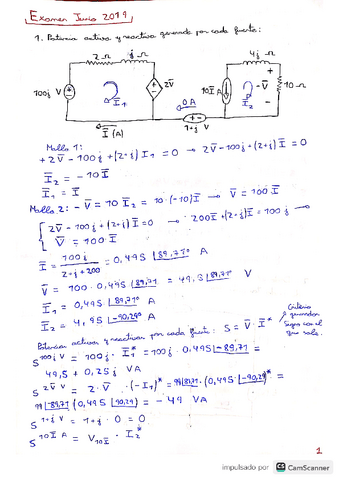 Examen Junio 2019
1. Potencia activa y reactiva generada por cada fuente:
2 Ω
j Ω
4j Ω
100j V
I̅₁
2V̅
10I̅ A
-V̅
+
-
10 Ω
0 A
I̅₂
I̅ (A)
1+j V
Malla 1:
+2V̅ - 100j + (2+j) I₁ = 0 → 2V̅ - 100j + (2+j) I̅ = 0
I̅₂ = -10 I̅
I̅₁ = I̅
Malla 2: -V̅ = 10 I̅₂ = 10·(-10) I̅ → V̅ = 100 I̅
2V̅ - 100j + (2+j) I̅ = 0 → 200I̅ + (2+j) I̅ = 100j →
V̅ = 100·I̅
I̅ = 100j / 2+j+200 = 0,495 |89,71° A
V̅ = 100 · 0,495 |89,71 = 49,5 |89,71° V
I̅₁ = 0,495 |89,71° A
I̅₂ = 4,95 |-90,29° A
Potencias activas y reactivas por cada fuente: S = V̅ · I̅*
Criterio
generador
signo con el
que sale.
S 100j V = 100j · I̅₁* = 100j · 0,495 |-89,71 =
49,5 + 0,25j VA
S 2V̅ V = 2·V̅ · (-I₁)* = 99|89,71 · (0,495 |-90,29)* =
99 |-89,71 (0,495 |90,29) = -49 VA
S 1+j V = 1+j · 0 = 0
S 10I̅ A = V10I̅ · I̅₂*
1
impulsado por CS CamScanner